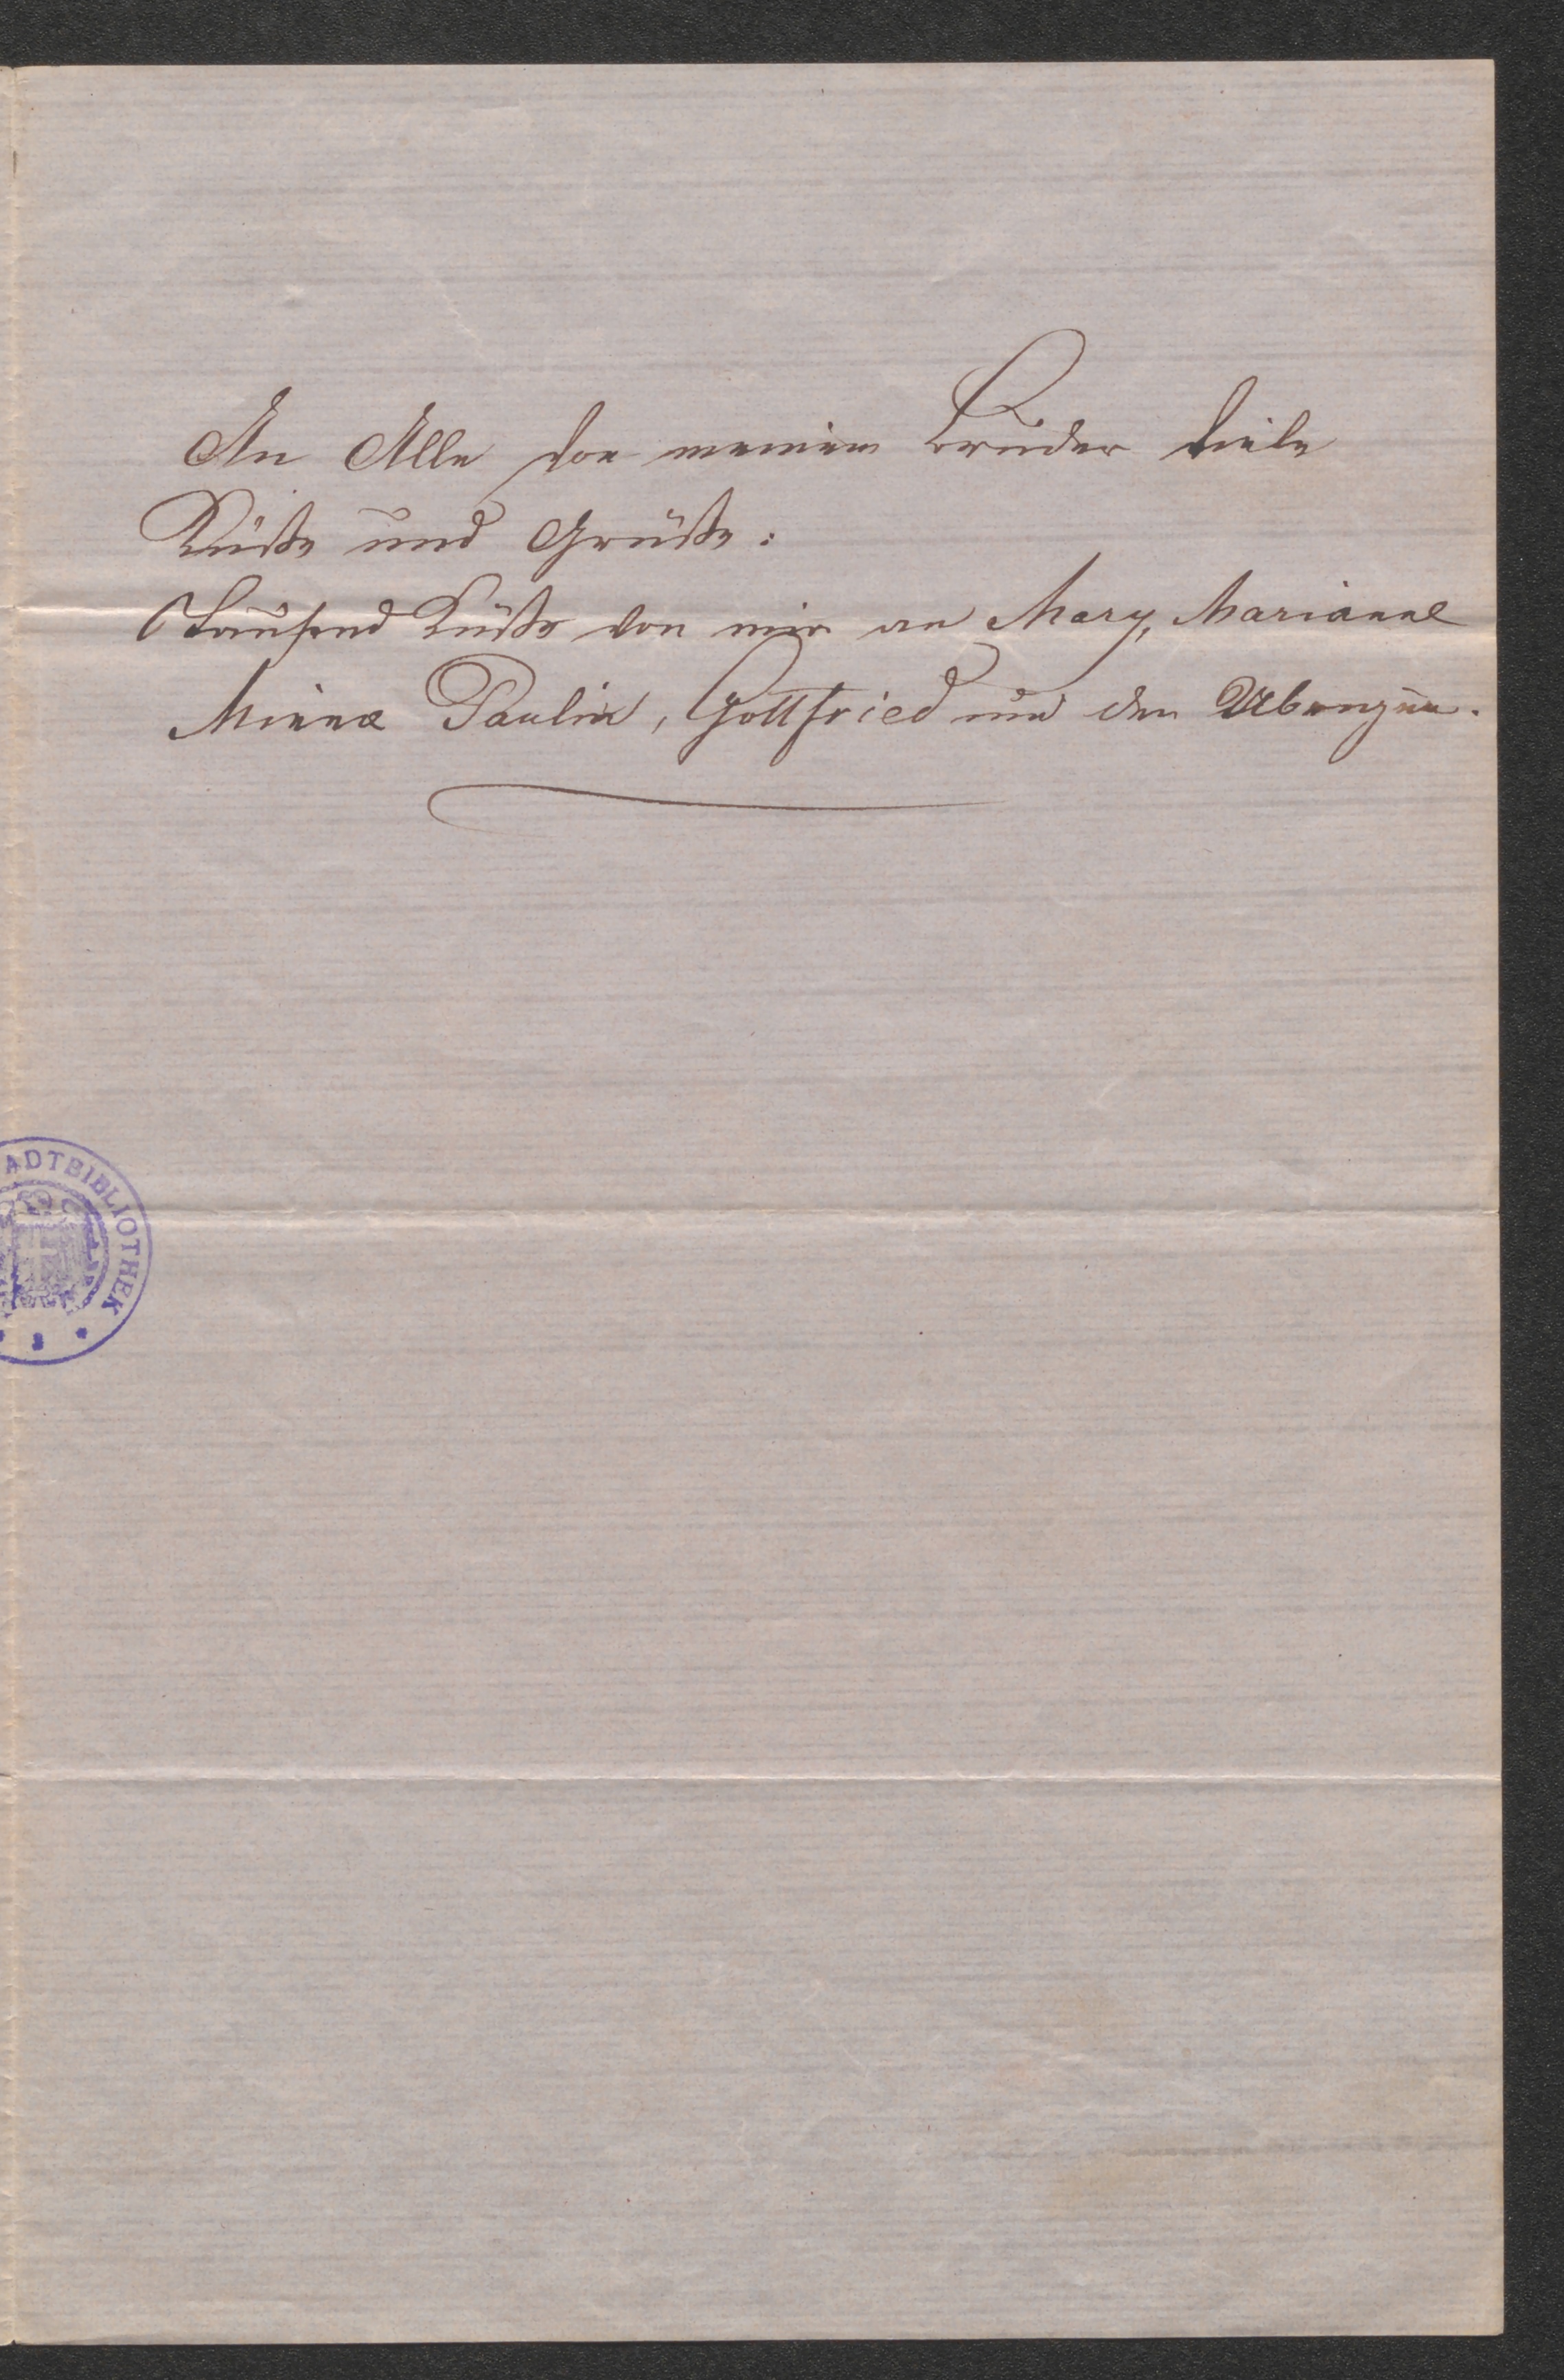 An Alle von meinem Bruder viele
Küße und Grüße.
Tausend Küße von mir an Mary, Marianne
Minna Paulin, Gottfried und den Uebrigen.
ADTBIBLIOTHEK